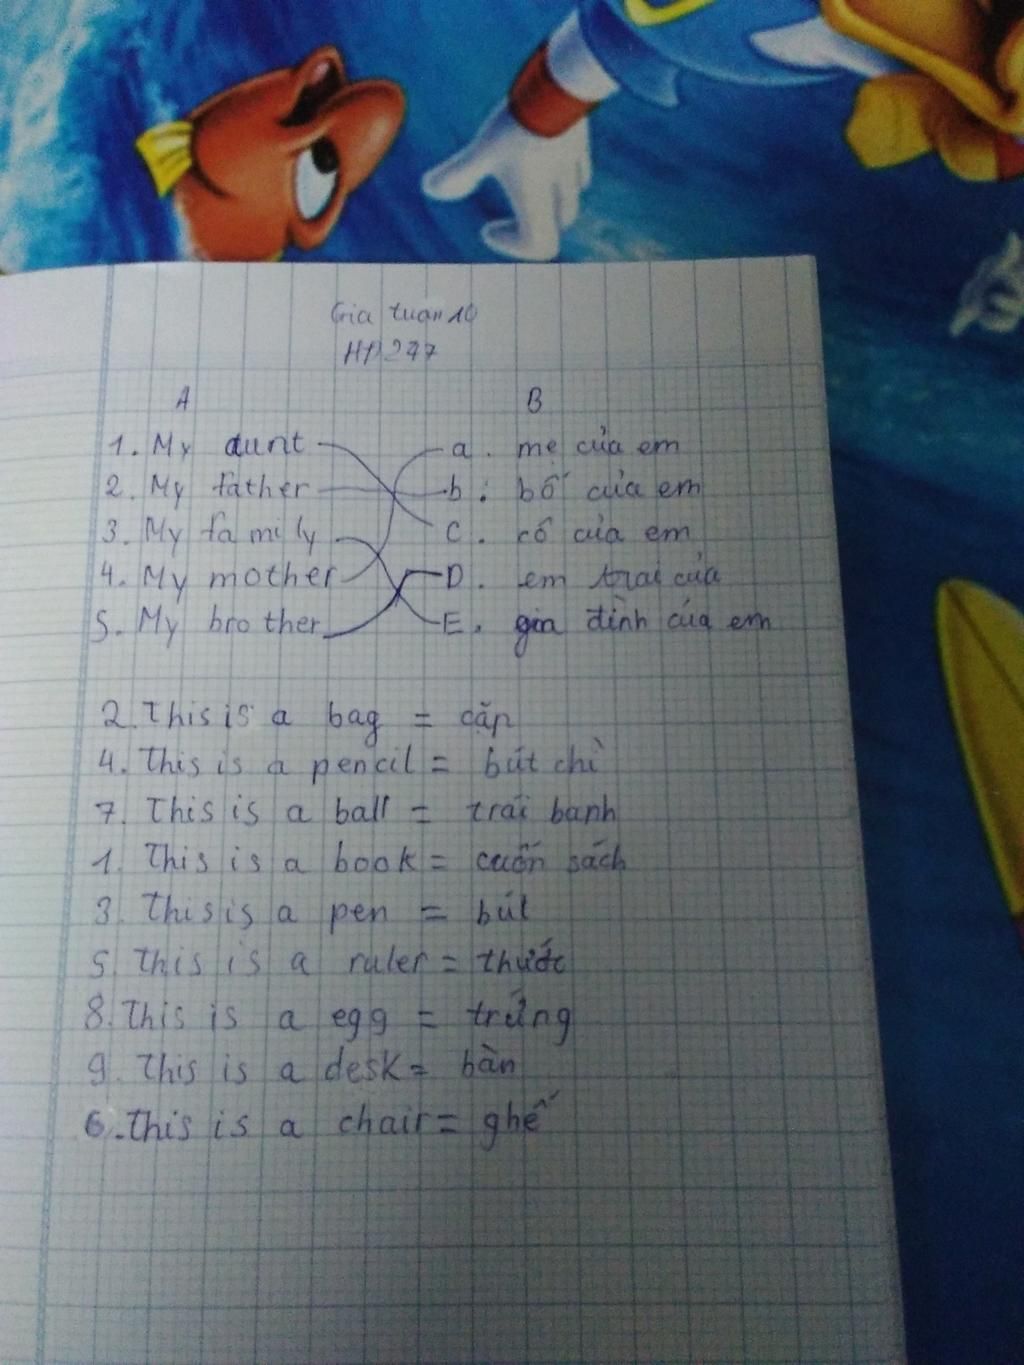 Gia tuấn 10
HP277
A B
1. My aunt a. mẹ của em
2. My father b. bố của em
3. My family C. cố của em
4. My mother D. em trai của
5. My brother E. gia đình của em
2. This is a bag = cặp
4. This is a pencil = bút chì
7. This is a ball = trái banh
1. This is a book = cuốn sách
3. This is a pen = bút
5. This is a ruler = thước
8. This is a egg = trứng
9. This is a desk = bàn
6. This is a chair = ghế